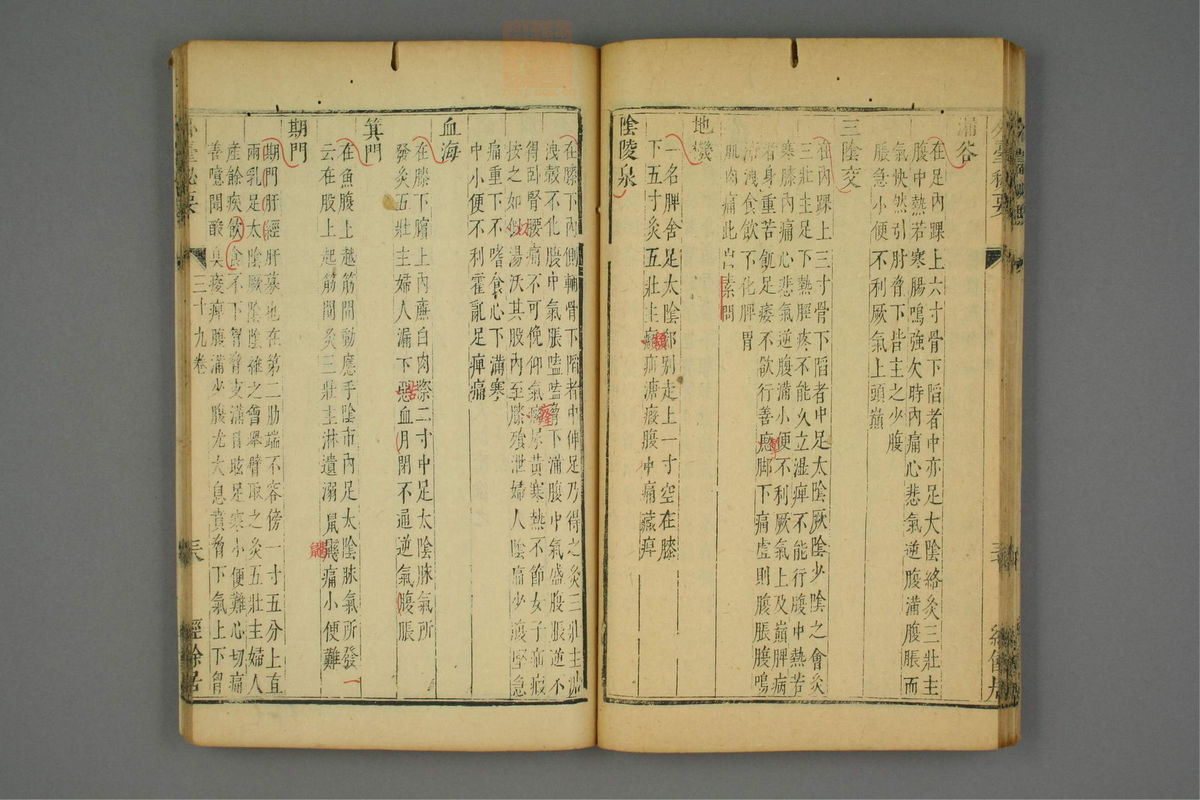 外臺秘要
漏谷
在足內踝上六寸骨下陷者中亦足大陰絡灸三壯主
腹中熱若寒腸鳴強欠時內痛心悲氣逆腹滿腹脹而
氣快然引肘脅下皆主之少腹
脹急小便不利厥氣上頭巔
三陰交
在內踝上三寸骨下陷者中足太陰厥陰少陰之會灸
三壯主足下熱脛疼不能久立湿痺不能行腹中熱若
寒膝內痛心悲氣逆腹滿小便不利厥氣上及巔脾病
者身重苦飢足痿不欲行善瘛脚下痛虛則腹脹腹鳴
溏洩食飲不化脾胃
肌肉痛此出素問
地機
一名脾舍足太陰郄別走上一寸空在膝
下五寸灸五壯主癩疝溏瘕腹中痛藏痺
陰陵泉
在膝下內側輔骨下陷者中伸足乃得之灸三壯主
洩穀不化腹中氣脹嗌嗌脅下滿腹中氣盛腹脹逆不
得臥腎腰痛不可俛仰氣癃尿黃寒熱不節女子疝瘕
按之如以湯沃其股內至膝飱泄婦人陰痛少腹堅急
痛重下不嗜食心下滿寒
中小便不利霍亂足痺痛
血海
在膝下臏上內廉白肉際二寸中足太陰脉氣所
發灸五壯主婦人漏下惡血月閉不通逆氣腹脹
箕門
在魚腹上越筋間動應手陰市內足太陰脉氣所發一
云在股上起筋間灸三壯主淋遺溺鼠鼷痛小便難
期門
期門肝經肝募也在第二肋端不容傍一寸五分上直
兩乳足太陰厥陰陰維之會舉臂取之灸五壯主婦人
產餘疾飲食不下胷脅支滿目眩足寒小便難心切痛
善噫聞酸臭痠痺腹滿少腹尤大息賁脅下氣上下胷
外臺秘要
三十九卷
經餘居